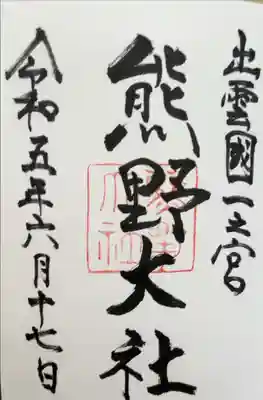 出雲國一之宮
熊野大社
令和五年六月十七日